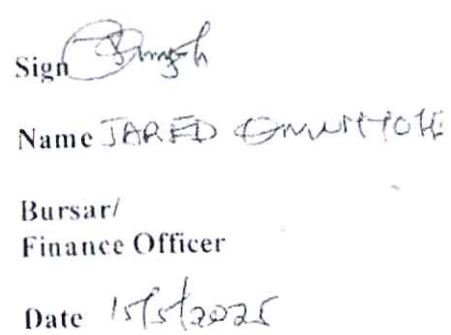 Sign
Name JARED
Bursar/
Finance Officer
Date 15/5/2025